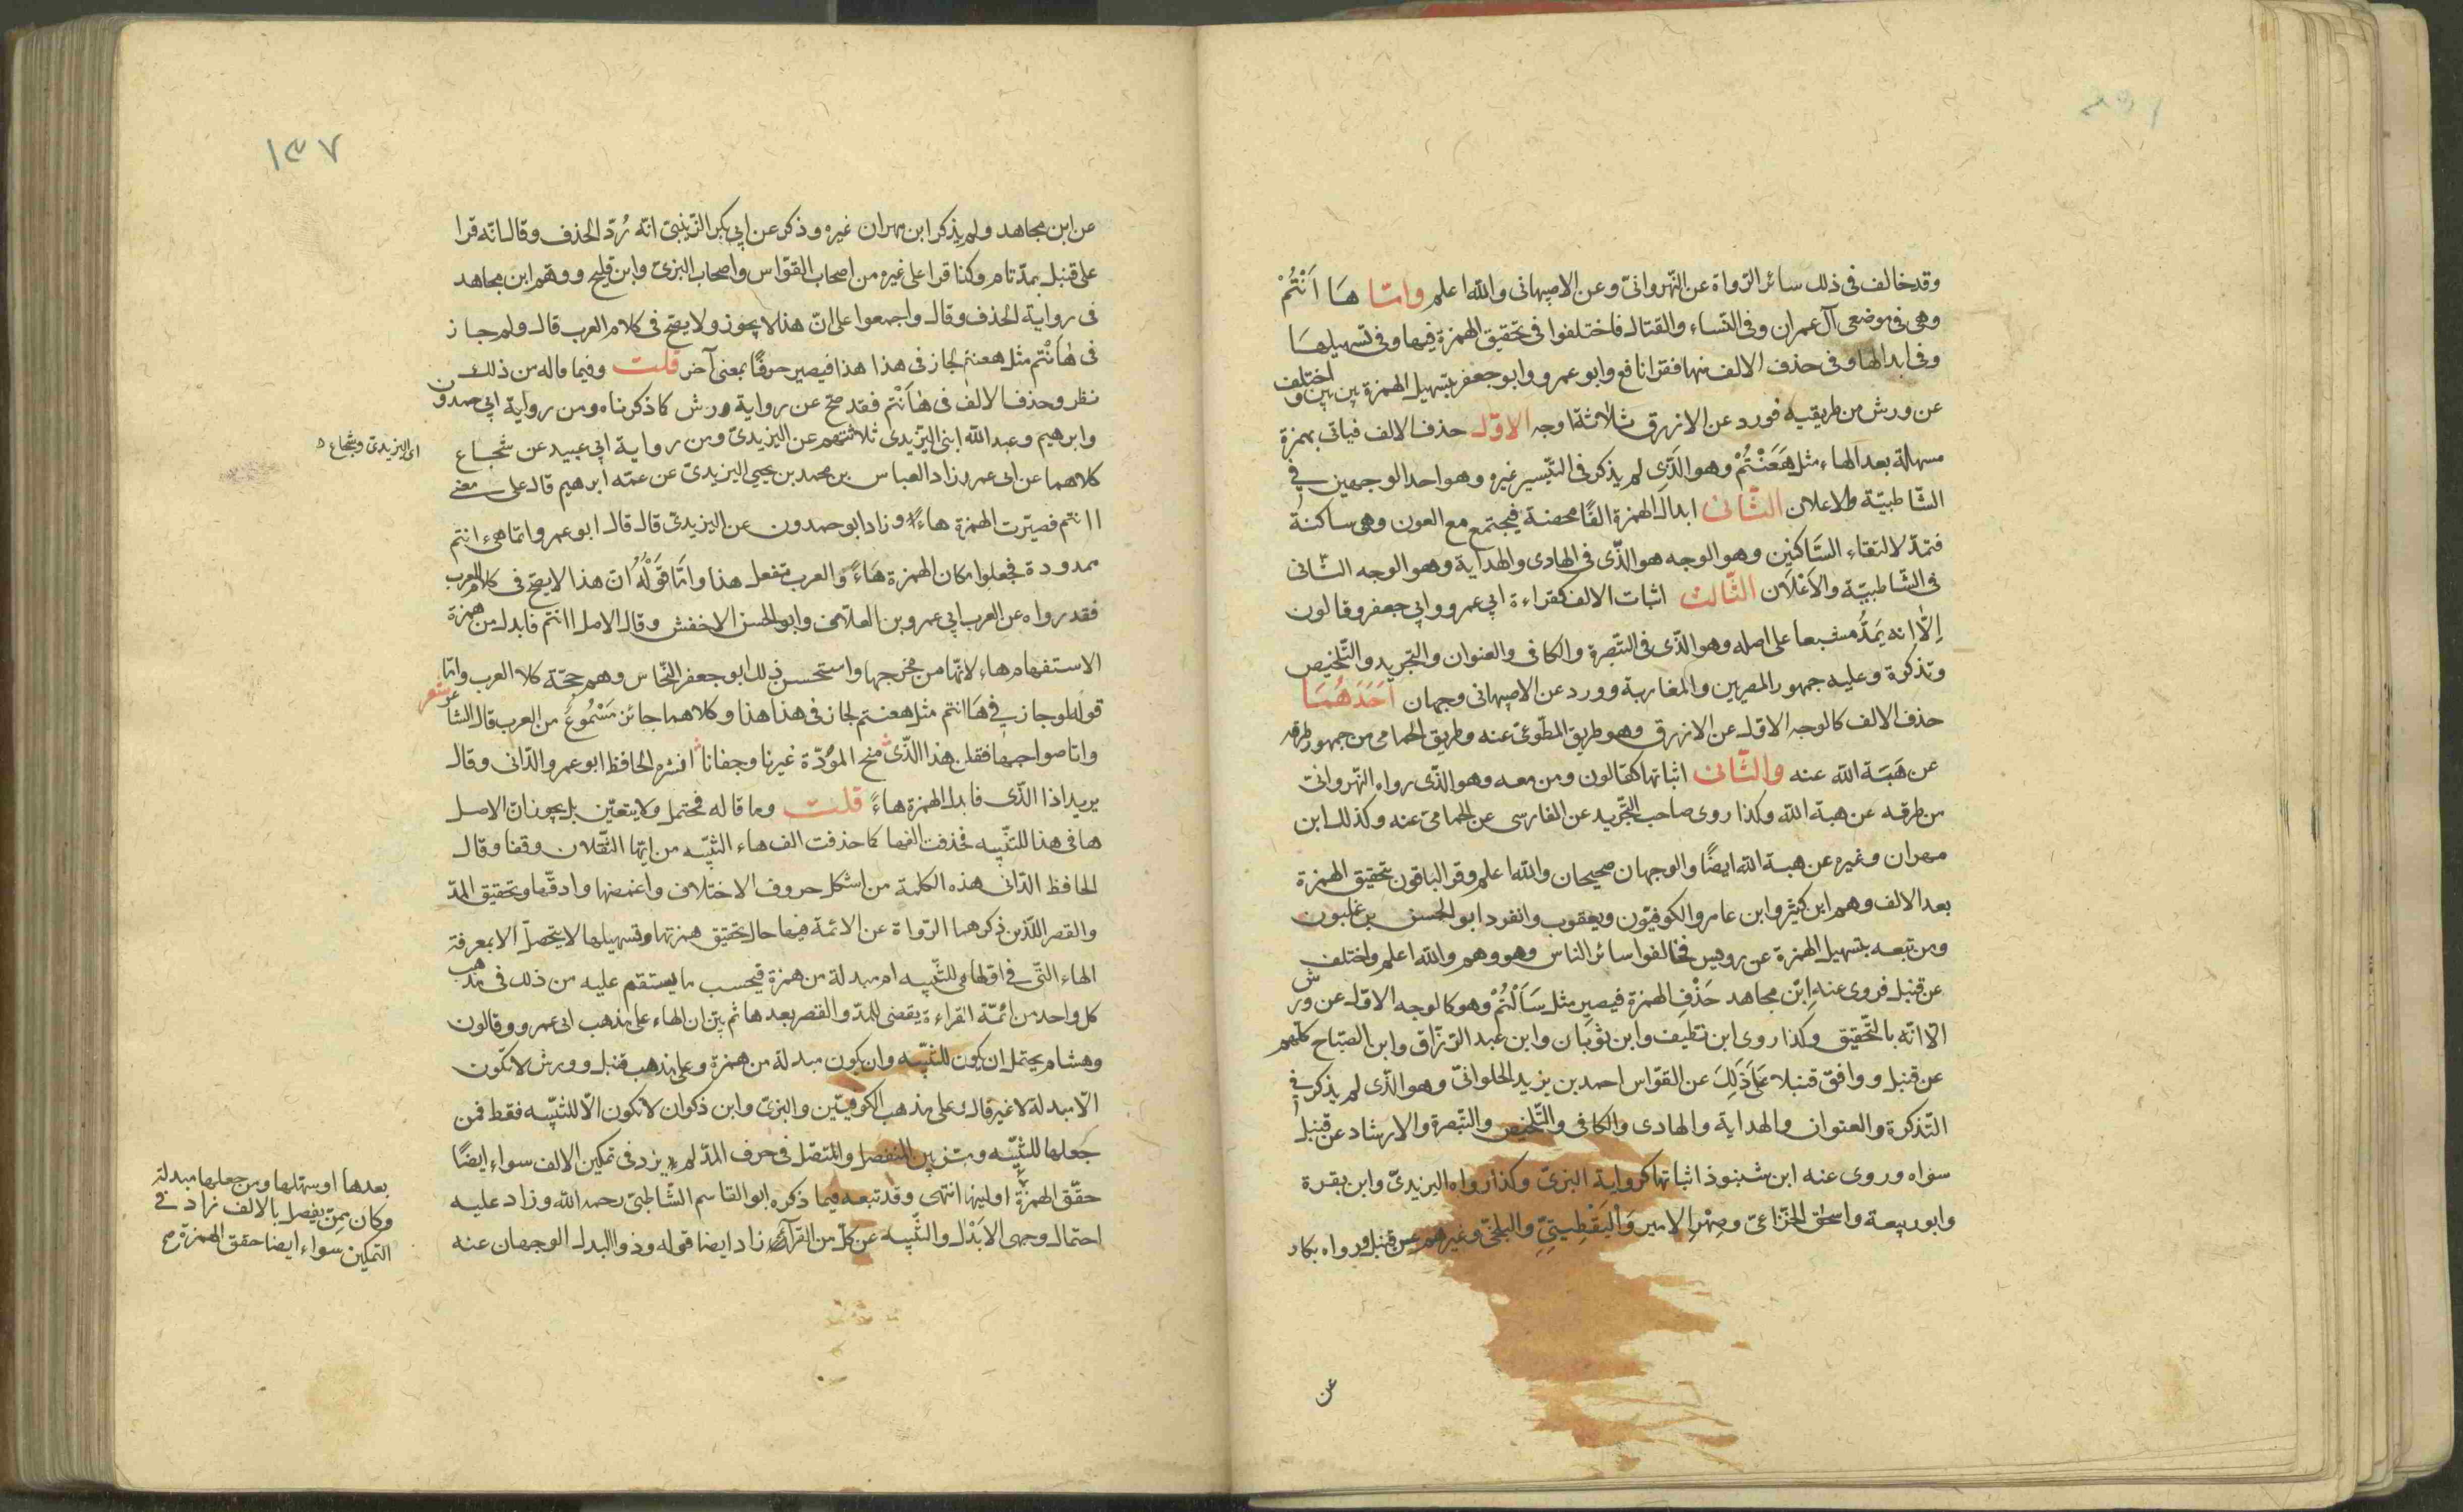 وقد خالف فى ذلك سائر الرّواة عن النّهروانىّ وعن الاصبهانى والله اعلم وامّا هَا اَنْتُمْ
وهى فى موضعى آل عمران وفى النّساء والقتال فاختلفوا فى تحقيق الهمزة فيها وفى تسهيلهَا
وفى ابدالها وفى حذف الالف منها فقرا نافع وابو عمرو وابو جعفر بتسهيل الهمزة بين بين واختلف
عن ورش من طريقيه فورد عن الازرق ثلاثة اوجه الاوّل حذف الالف فياتى بهمزة
مسهلة بعد الهاء مثل هَعَنْتُمْ وهو الّذى لم يذكر فى التيّسير غيره وهو احد الوجهين فى
الشّاطبيّة والاعلان الثّانى ابدال الهمزة الفًا محضة فيجتمع مع النون وهى ساكنة
فتمدّ لالتقاء السّاكنين وهو الوجه هو الّذى فى الهادى والهداية وهو الوجه الثّانى
فى الشّاطبيّة والاَعْلاَن الثّالث اثبات الالف كقراءة ابى عمرو وابى جعفر وقالون
اِلّا انه يَمَدُّ مشبعا على اصله وهو الّذى فى التّبصرة والكافى والعنوان والتجريد والتّلخيص
وتذكرة وعليه جمهور المصريين والمغاربة وورد عن الاصبهانى وجهان اَحَدَهُمَا
حذف الالف كالوجه الاوّل عن الازرق وهو طريق المطّوعىّ عنه وطريق الحمامى من جمهور طرقه
عن هَبَة الله عنه والثّانى اثباتها كقالون ومن معه وهو الّذى رواه النّهروانى
من طرقه عن هبة الله وكذا روى صاحب التّجريد عن الفارسى عن الحمامىّ عنه وكذلك ابن
مهران وغيره عن هبة الله ايضًا والوجهان صحيحان والله اعلم وقرا الباقون بتحقيق الهمزة
بعد الالف وهم ابن كثير وابن عامر والكوفيّون ويعقوب وانفرد ابو الحسن بن غلبون
ومن تبعه بتسهيل الهمزة عن رويس فخالفوا سائر الناس وهو وهم والله اعلم واختلف
عن قنبل فروى عنه اِبْن مجاهد حَذْفَ الهمزة فيصير مثل سَاَلْتُمْ وهو كالوجه الاوّل عن ورش
الّا انّه بالتّحقيق وكذا روى ابن نظيف وابن ثوبَان وابن عبد الرّزّاق وابن الصّبّاح كلّهم
عن قنبل ووافق قنبلا عَلَى ذَلِكَ عن القوّاس احمد بن يزيد الحلوانىّ وهو الّذى لم يذكر فى
التّذكرة والعنوان والهداية والهادى والكافى والتّلخيص والتّبصرة والارشاد عن قنبل
سواه وروى عنه ابن شنبوذ اثباتها كرواية البزىّ وكذا رواه اليزيدىّ وابن بقرة
وابو ربيعة واسحق الخزّاعىّ وصِهْرِ الامير وَاليَقْطِينِيِّ والبلخىّ وغيرهم عن قنبل ورواه بكار
عن
١٣٧
عن ابن مجاهد ولم يذكر ابن مهران غيره وذكر عن ابى بكر الزّينبىّ انّه رُدّ الحذف وقال انّه قرا
على قنبل بمدّ تام وكنا قرا على غيره من اصحاب القوّاس واصحاب البزىّ وابن فليح ووهم ابن مجاهد
فى رواية الحذف وقال واجمعوا على انّ هذا لا يجوز ولا يصحّ فى كلام العرب قال ولم جاز
فى هٰاَنْتم مثل هعنتم لجاز فى هذا هذا فيصير حرفًا بمعنى آخر قلت وفيما قاله من ذلك
نظر وحذف الالف فى هٰاَنْتم فقد صحّ عن رواية ورش كما ذكرناه ومن رواية ابى حمدون
وابرهيم وعبد الله ابنى اليّزيدى ثلاثتهم عن اليزيدىّ ومن رواية ابى عبيد عن شجاع
اى اليزيدىّ وشجاع
كلاهما عن ابى عمرو زاد العباس بن محمد بن يحيى اليزيدىّ عن عمّه ابرهيم قال على معنى
اانتم فصيّرت الهمزة هاءً وزاد ابو حمدون عن اليزيدىّ قال قال ابو عمرو وانّما هى ءانتم
ممدودة فجعلوا مكان الهمزة هَاءً والعرب تفعل هذا وامّا قَوْلُهُ انّ هذا لا يصحّ فى كلام العرب
فقد رواه عن العرب ابى عمرو بن العلاء وابو الحسن الاخفش وقال الاصل اانتم فابدل من همزة
الاستفهام هاء لانّها من مخرجها واستحسن ذلك ابو جعفر النّحاس وهم حجّة كلام العرب وامّا
قوله لو جاز فى هَا انتم مثل هعنتم لجاز فى هذا هذا وكلاهما جائز مَسْمُوعٌ من العرب قال الشاعر شعر
واتا صواحبها فقلن هذا الّذى منح المودّة غيرنا وجفانا انشده الحافظ ابو عمرو الدّانى وقال
يريد اذا الّذى فابدل الهمزة هاءً قلت وما قاله محتمل ولا يتعيّن بل يجوز انّ الاصل
ها فى هذا للتنبّيه فحذفت الفها كما حذفت الف هاء التنبّيه من ايّها الثّقلان وقفا وقال
الحافظ الدّانى هذه الكلمة من اشكل حروف الاختلاف واغمضها وادقّها وتحقيق المدّ
والقصر اللّذين ذكرهما الرّواة عن الائمة فيها حال تحقيق همزتها وتسهيلها لا يتحصلّ الا بمعرفة
الهاء التّى فى اوّلها هى للتّنبيه ام مبدلة من همزة فيحسب ما يستقم عليه من ذلك فى مذهب
كل واحد من ائمّة القراءة يقضى للمدّ والقصر بعدها ثم بيّن ان الهاء على مذهب ابى عمرو وقالون
وهشام يحتمل ان يكون للتنبّيه وان يكون مبدلة من همزة وعلى مذهب قنبل وورش لا تكون
الّا مبدلة لا غير قال وعلى مذهب الكوفيّين والبزىّ وابن ذكوان لا تكون الّا للتنبّيه فقط فمن
جعلها للتنبّيه وميّز بين المنفصل والمتصّل فى حرف المدّ لم يزد فى تمكين الالف سواء ايضًا
حقّق الهمزة اوليّنها انتهى وقد تبعه فيما ذكره ابو القاسم الشّاطبىّ رحمه الله وزاد عليه
احتمال وجهى الابْدال والتنّبيه عن كلّ من القرآء زاد ايضا قوله وذو البدل الوجهان عنه
بعدها او سهّلها ومن جعلها مبدلة
وكان ممّن يفصل بالالف زاد فى
التمكين سواء ايضا حقق الهمزة صح